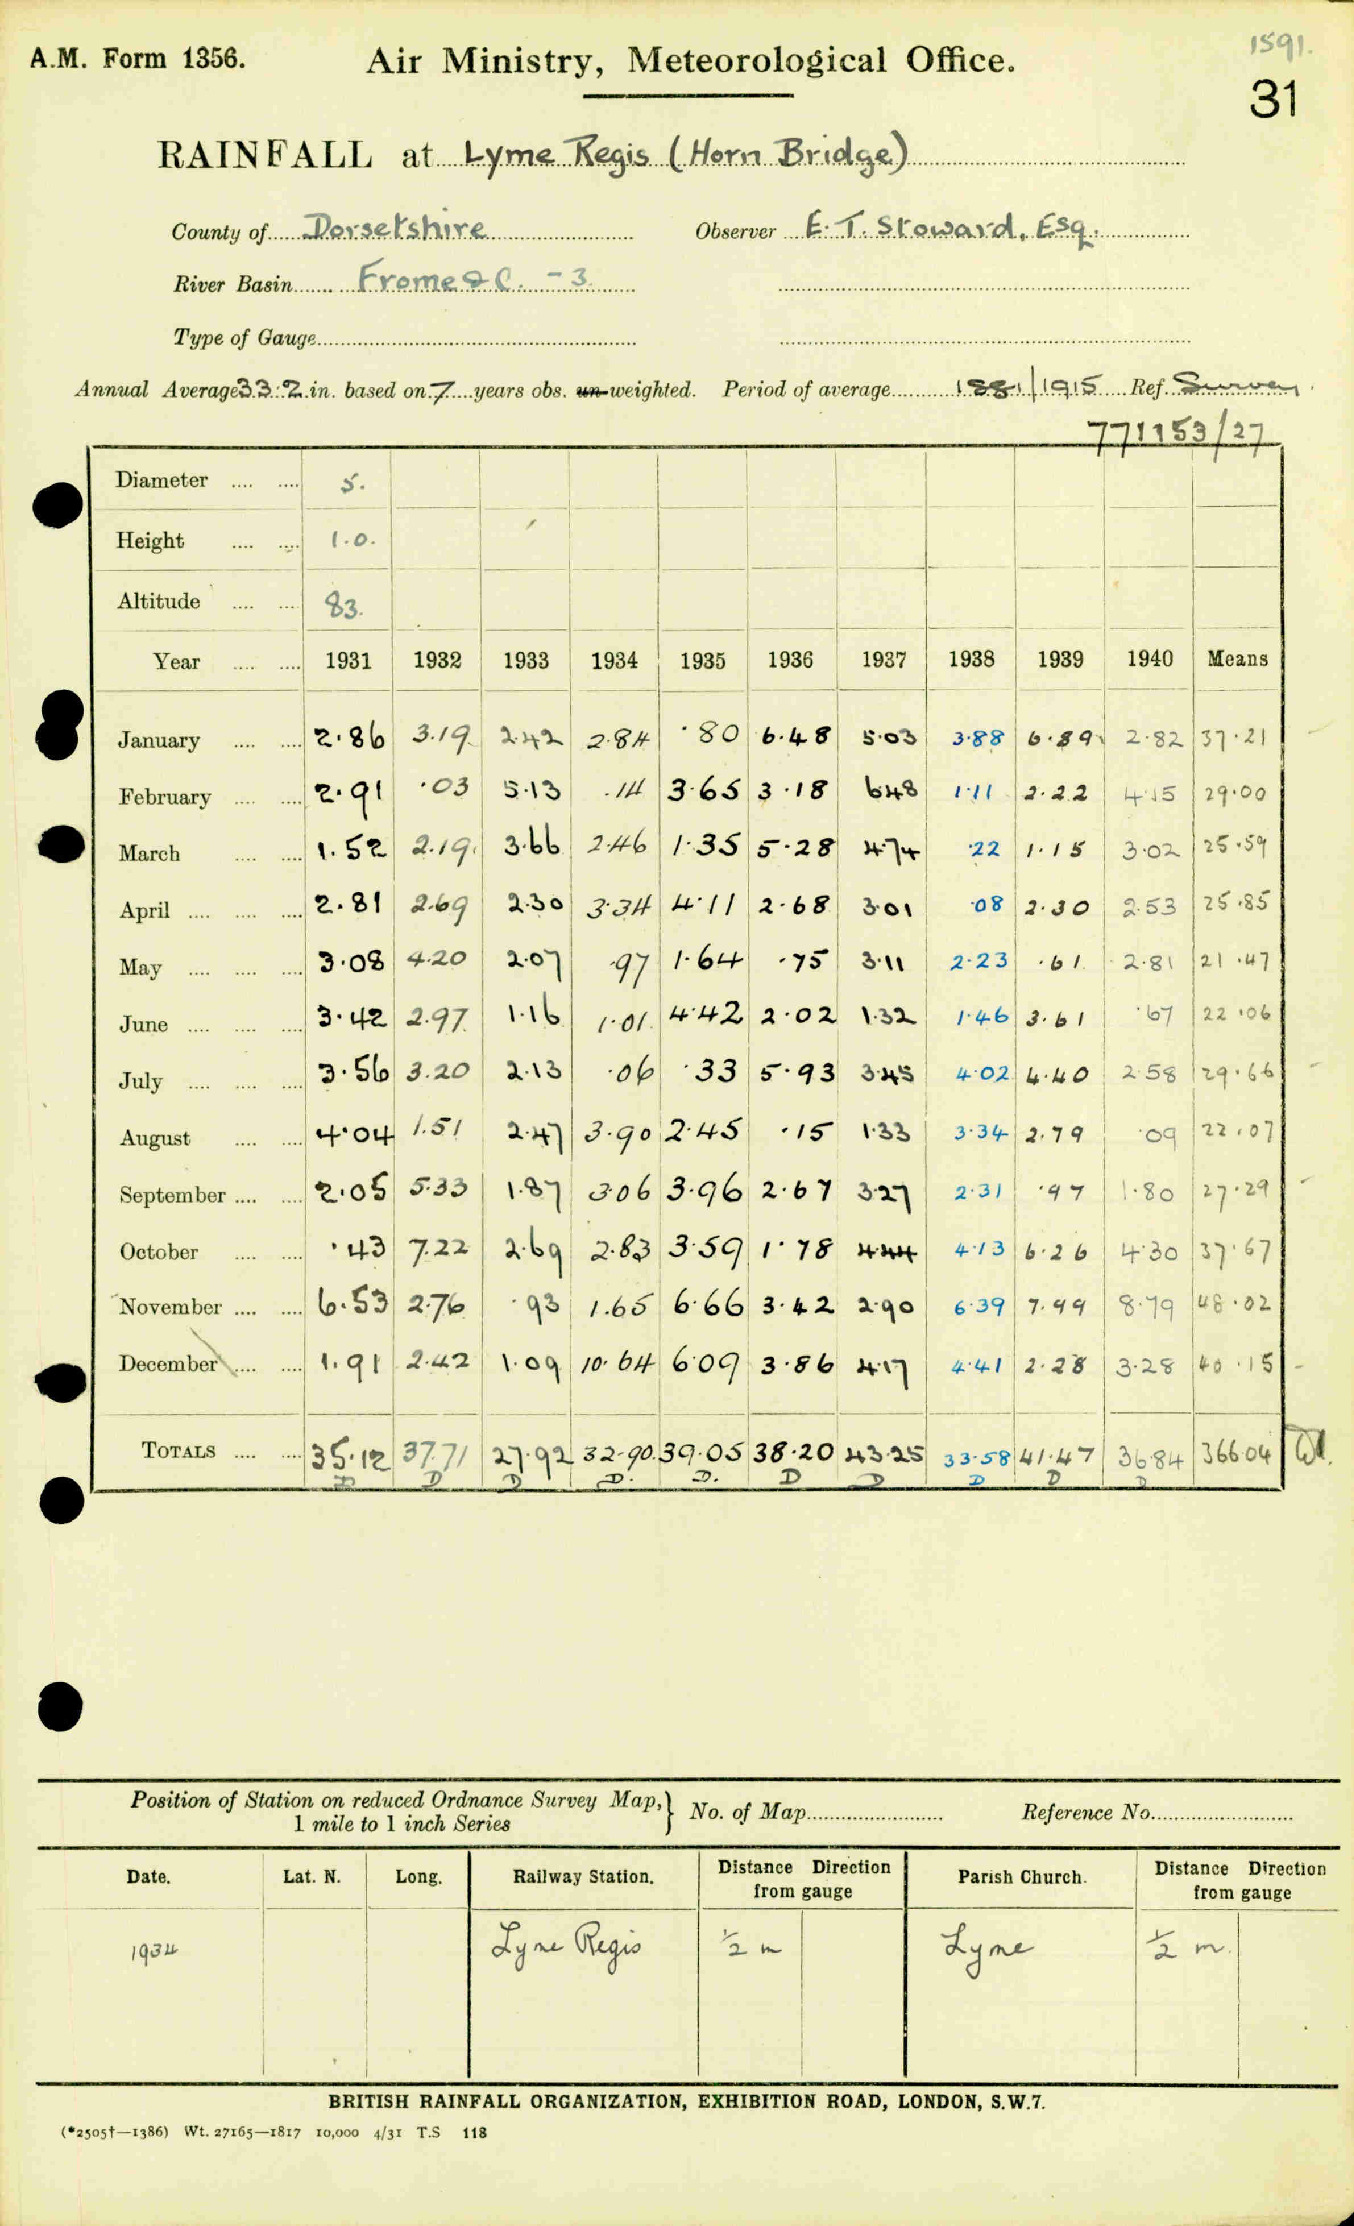 1591.
A.M. Form 1356. Air Ministry, Meteorological Office.
31
RAINFALL at Lyme Regis (Horn Bridge)
County of Dorsetshire Observer E. T. Stoward, Esq.
River Basin Frome &C. - 3.
Type of Gauge
Annual Average 33.2 in. based on 7 years obs. un-weighted. Period of average 1881/1915 Ref. Survey
771153/27
Diameter 5.
Height 1.0.
Altitude 83.
Year 1931 1932 1933 1934 1935 1936 1937 1938 1939 1940 Means
January 2.86 3.19 2.42 2.84 .80 6.48 5.03 3.88 6.89 2.82 37.21
February 2.91 .03 5.13 .14 3.65 3.18 6.48 1.11 2.22 4.15 29.00
March 1.52 2.19 3.66 2.46 1.35 5.28 4.74 .22 1.15 3.02 25.59
April 2.81 2.69 2.30 3.34 4.11 2.68 3.01 .08 2.30 2.53 25.85
May 3.08 4.20 2.07 .97 1.64 .75 3.11 2.23 .61 2.81 21.47
June 3.42 2.97 1.16 1.01 4.42 2.02 1.32 1.46 3.61 .67 22.06
July 3.56 3.20 2.13 .06 .33 5.93 3.45 4.02 4.40 2.58 29.66
August 4.04 1.51 2.47 3.90 2.45 .15 1.33 3.34 2.79 .09 22.07
September 2.05 5.33 1.87 3.06 3.96 2.67 3.27 2.31 .97 1.80 27.29
October .43 7.22 2.69 2.83 3.59 1.78 4.44 4.13 6.26 4.30 37.67
November 6.53 2.76 .93 1.65 6.66 3.42 2.90 6.39 7.99 8.79 48.02
December 1.91 2.42 1.09 10.64 6.09 3.86 4.17 4.41 2.28 3.28 40.15
TOTALS 35.12 37.71 27.92 32.90 39.05 38.20 43.25 33.58 41.47 36.84 366.04
D D D D. D. D D D D D
Position of Station on reduced Ordnance Survey Map, } No. of Map Reference No.
1 mile to 1 inch Series
Date. Lat. N. Long. Railway Station. Distance Direction from gauge Parish Church. Distance Direction from gauge
1934 Lyme Regis ½ m Lyme ½ m.
BRITISH RAINFALL ORGANIZATION, EXHIBITION ROAD, LONDON, S.W.7.
(*2505†—1386) Wt. 27165—1817 10,000 4/31 T.S 118